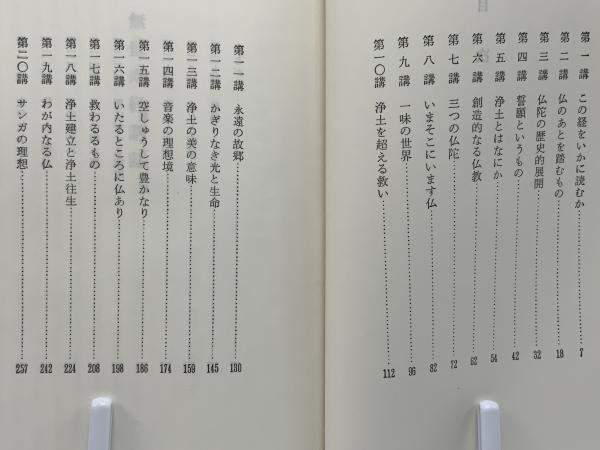 目次
第一講 この経をいかに読むか 7
第二講 仏のあとを踏むもの 18
第三講 仏陀の歴史的展開 32
第四講 誓願というもの 42
第五講 浄土とはなにか 54
第六講 創造的なる仏教 62
第七講 三つの仏陀 72
第八講 いまそこにいます仏 82
第九講 一味の世界 96
第一〇講 浄土を超える救い 112
第一一講 永遠の故郷 130
第一二講 かぎりなき光と生命 145
第一三講 浄土の美の意味 159
第一四講 音楽の理想境 174
第一五講 空しゅうして豊かなり 186
第一六講 いたるところに仏あり 198
第一七講 救わるるもの 208
第一八講 浄土建立と浄土往生 224
第一九講 わが内なる仏 242
第二〇講 サンガの理想 257